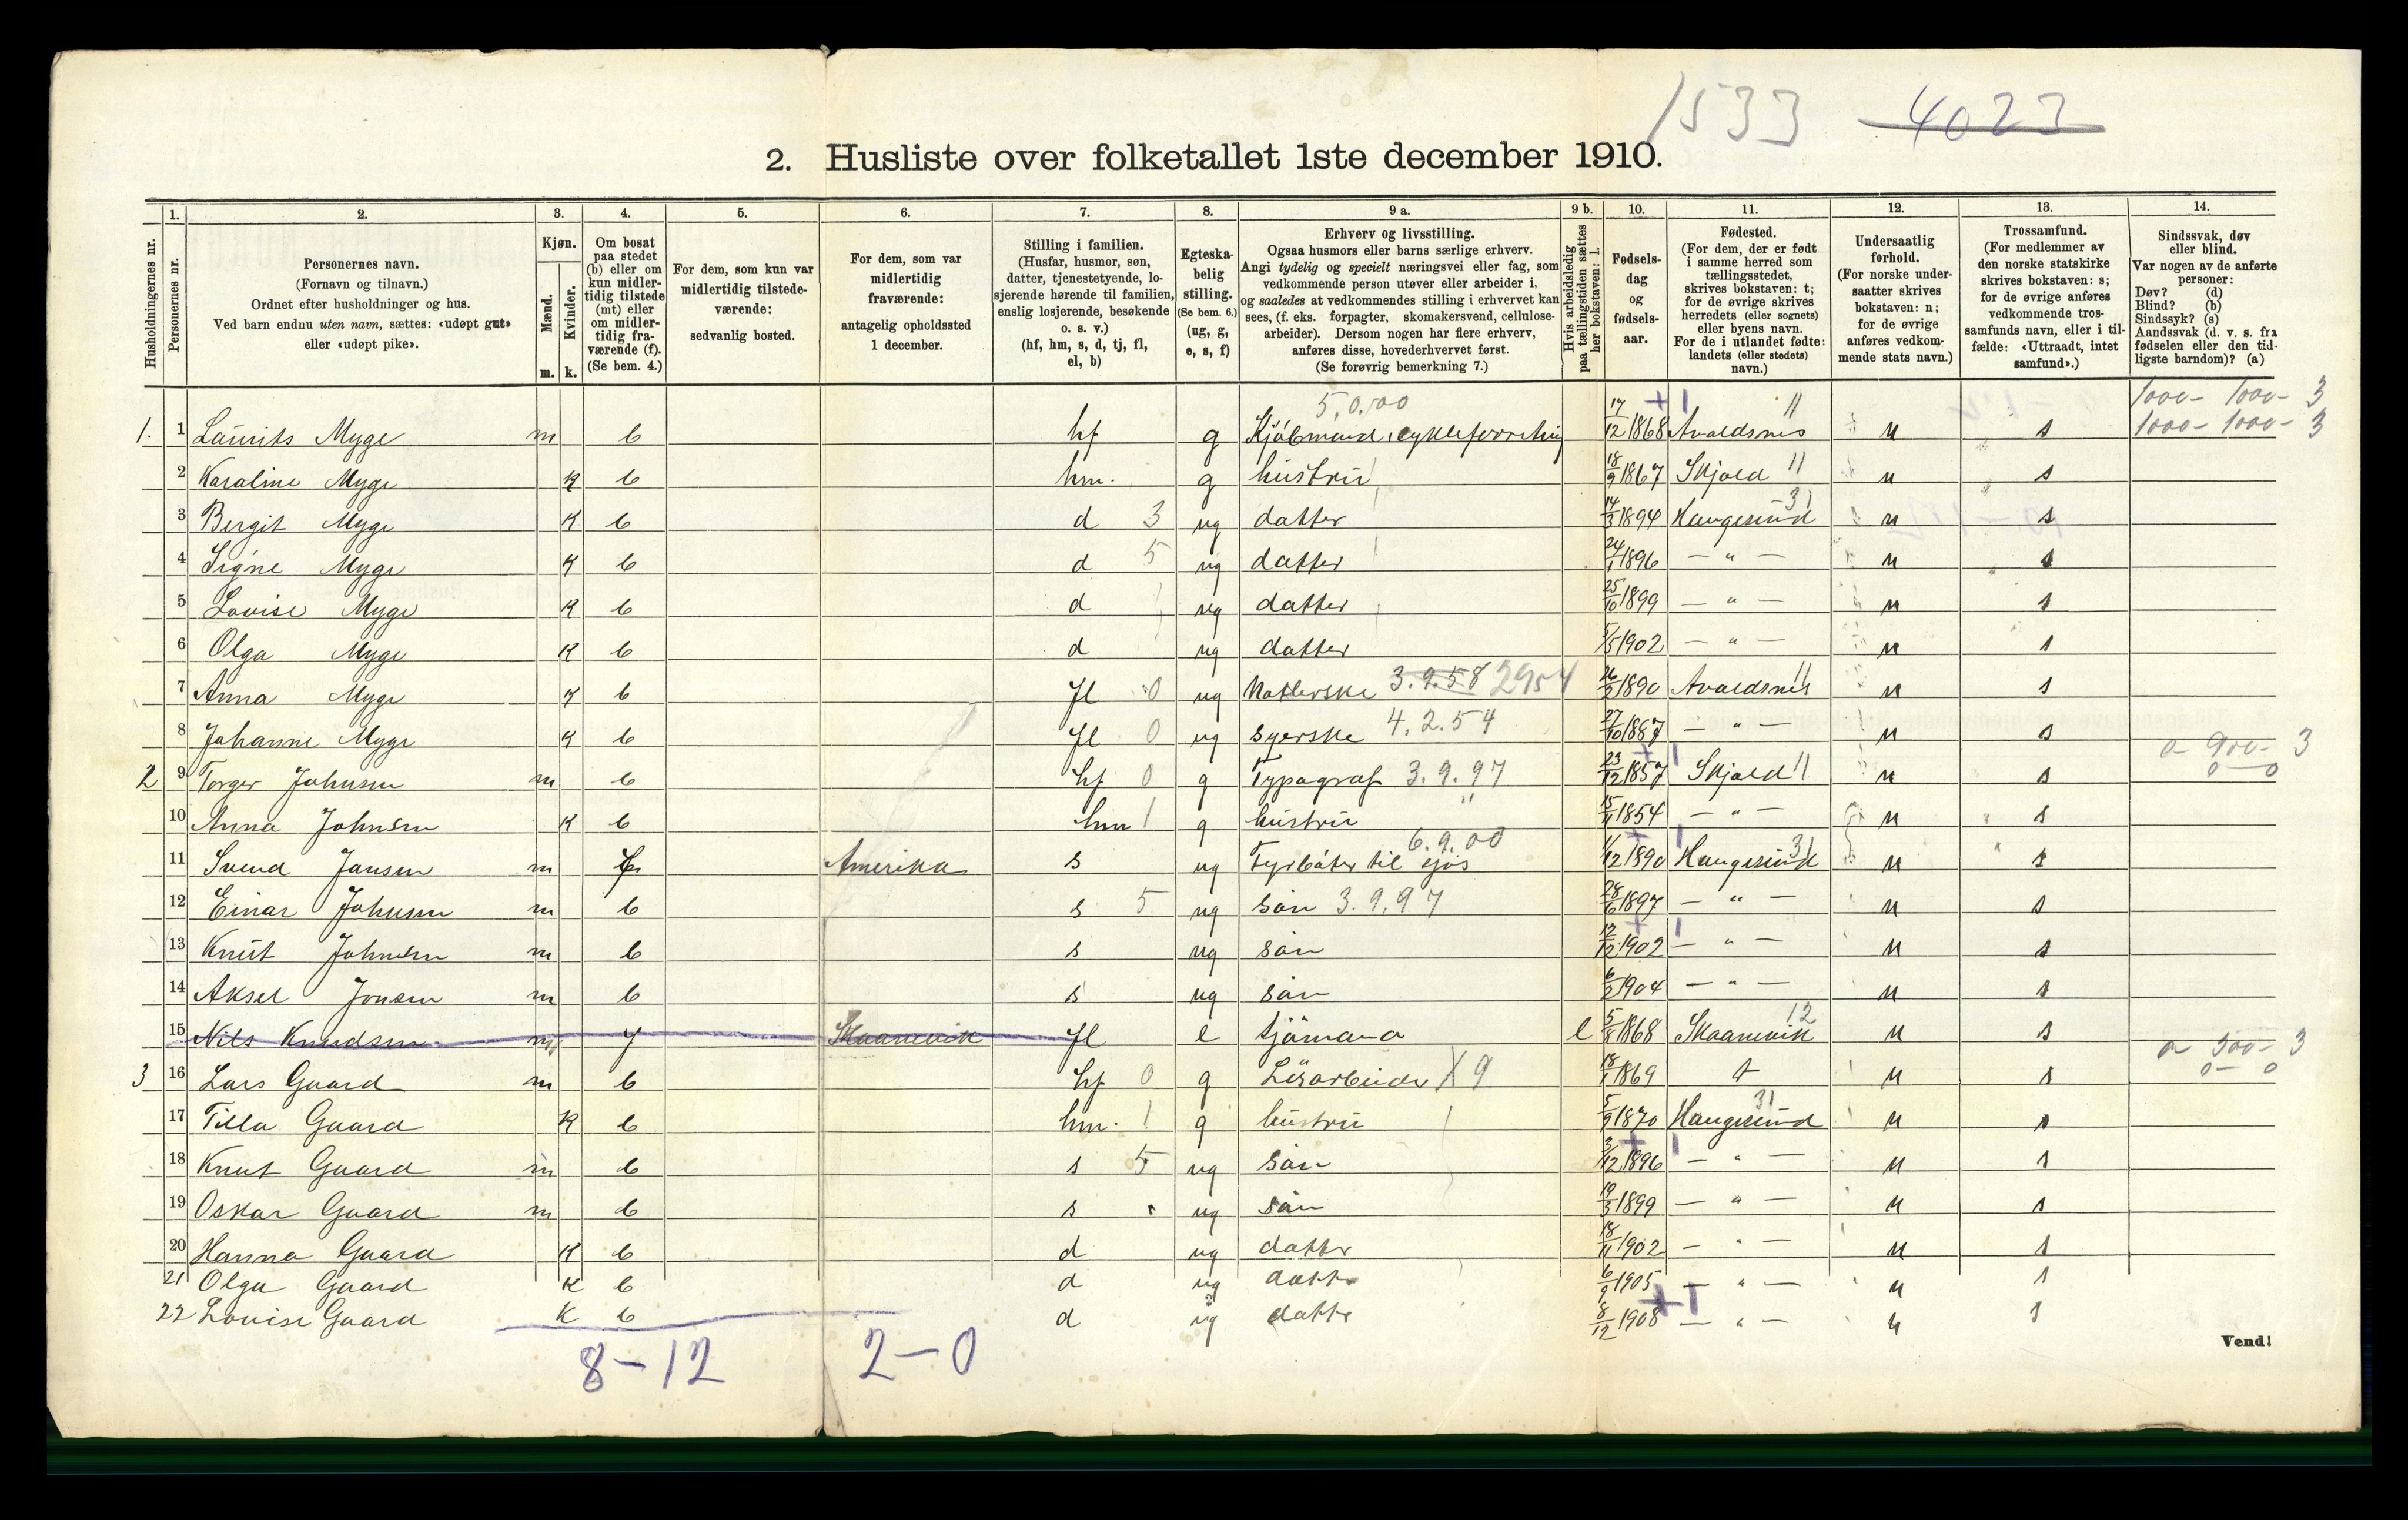 1533 4023
2. Husliste over folketallet 1ste december 1910.
1. 2. 3. 4. 5. 6. 7. 8. 9 a. 9 b. 10. 11. 12. 13. 14.
Husholdningernes nr.
Personernes nr.
Personernes navn.
(Fornavn og tilnavn.)
Ordnet efter husholdninger og hus.
Ved barn endnu uten navn, sættes: «udøpt gut»
eller «udøpt pike».
Kjøn.
Mænd.
Kvinder.
m. k.
Om bosat
paa stedet
(b) eller om
kun midler-
tidig tilstede
(mt) eller
om midler-
tidig fra-
værende (f).
(Se bem. 4.)
For dem, som kun var
midlertidig tilstede-
værende:
sedvanlig bosted.
For dem, som var
midlertidig
fraværende:
antagelig opholdssted
1 december.
Stilling i familien.
(Husfar, husmor, søn,
datter, tjenestetyende, lo-
sjerende hørende til familien,
enslig losjerende, besøkende
o. s. v.)
(hf, hm, s, d, tj, fl,
el, b)
Egteska-
belig
stilling.
(Se bem. 6.)
(ug, g,
e, s, f)
Erhverv og livsstilling.
Ogsaa husmors eller barns særlige erhverv.
Angi tydelig og specielt næringsvei eller fag, som
vedkommende person utøver eller arbeider i,
og saaledes at vedkommendes stilling i erhvervet kan
sees, (f. eks. forpagter, skomakersvend, cellulose-
arbeider). Dersom nogen har flere erhverv,
anføres disse, hovederhvervet først.
(Se forøvrig bemerkning 7.)
Hvis arbeidsledig
paa tællingstiden sættes
her bokstaven: l.
Fødsels-
dag
og
fødsels-
aar.
Fødested.
(For dem, der er født
i samme herred som
tællingsstedet,
skrives bokstaven: t;
for de øvrige skrives
herredets (eller sognets)
eller byens navn.
For de i utlandet fødte:
landets (eller stedets)
navn.)
Undersaatlig
forhold.
(For norske under-
saatter skrives
bokstaven: n;
for de øvrige
anføres vedkom-
mende stats navn.)
Trossamfund.
(For medlemmer av
den norske statskirke
skrives bokstaven: s;
for de øvrige anføres
vedkommende tros-
samfunds navn, eller i til-
fælde: «Uttraadt, intet
samfund».)
Sindssvak, døv
eller blind.
Var nogen av de anførte
personer:
Døv? (d)
Blind? (b)
Sindssyk? (s)
Aandssvak (d. v. s. fra
fødselen eller den tid-
ligste barndom)? (a)
5.0.00 1000- 1000- 3
1. 1 Laurits Myge m b hf g Kjöbmand, cykleforretning 17/12 1868 Avaldsnes 11 n s 1000- 1000- 3
2 Karoline Myge k b hm. g hustru 18/9 1867 Skjold 11 n s
3 Bergit Myge k b d 3 ug datter 14/3 1894 Haugesund 31 n s
4 Signe Myge k b d 5 ug datter 24/1 1896 — " — n s
5 Lovise Myge k b d ug datter 25/10 1899 — " — n s
6 Olga Myge k b d ug datter 5/5 1902 — " — n s
7 Anna Myge k b fl 0 ug 3.9.58 2954 26/2 1890 Avaldsnes 11 n s
8 Johanne Myge k b fl 0 ug syerske 4.2.54 27/10 1887 — " — n s
2 9 Torger Johnsen m b hf 0 g Typograf 3.9.97 23/12 1857 Skjold 11 n s 0 900- 3
10 Anna Johnsen k b hm 1 g hustru " 15/11 1854 — " — n s
11 Svend Jansen m f Amerika s ug Fyrböter til sjös 6.9.00 1/12 1890 Haugesund 31 n s
12 Einar Johnsen m b s 5 ug sön 3.9.97 28/6 1897 — " — n s
13 Knut Johnsen m b s ug sön 12/12 1902 — " — n s
14 Aksel Jonsen m b s ug sön 6/2 1904 — " — n s
15 Nils Knudsen m f Skaanevik fl e sjömand l 5/8 1868 Skaanevik 12 n s
3 16 Lars Gaard m b hf 0 g Lösarbeider X9 18/1 1869 t n s 0 500- 3
17 Tilla Gaard k b hm. 1 g hustru 5/9 1870 Haugesund 31 n s
18 Knut Gaard m b s 5 ug sön 3/12 1896 — " — n s
19 Oskar Gaard m b s ug sön 19/3 1899 — " — n s
20 Hanna Gaard k b d ug datter 18/11 1902 — " — n s
21 Olga Gaard k b d ug datter 6/9 1905 — " — n s
22 Lovise Gaard k b d ug datter 8/12 1908 — " — n s
Vend!
8-12 2-0